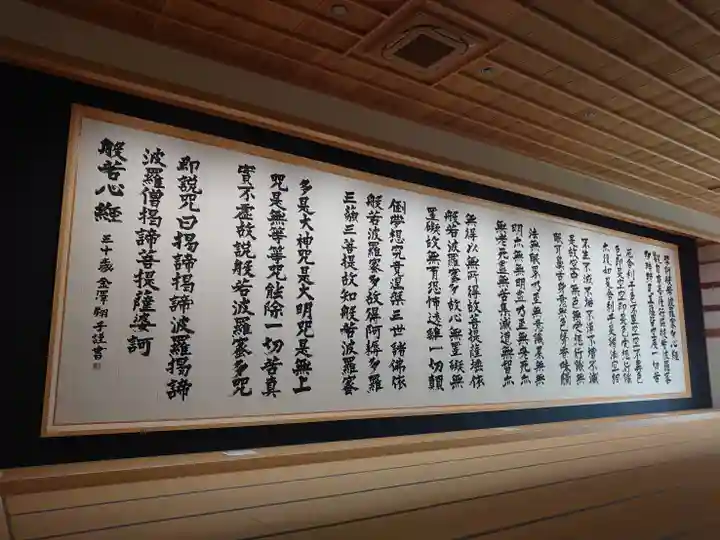 摩訶般若波羅蜜多心経
観自在菩薩行深般若波羅蜜
多時照見五蘊皆空度一切苦
厄舎利子色不異空空不異色
色即是空空即是色受想行識
亦復如是舎利子是諸法空相
不生不滅不垢不浄不増不減
是故空中無色無受想行識無
眼耳鼻舌身意無色声香味触
法無眼界乃至無意識界無無
明亦無無明尽乃至無老死亦
無老死尽無苦集滅道無智亦
無得以無所得故菩提薩埵依
般若波羅蜜多故心無罣礙無
罣礙故無有恐怖遠離一切顛
倒夢想究竟涅槃三世諸佛依
般若波羅蜜多故得阿耨多羅
三藐三菩提故知般若波羅蜜
多是大神咒是大明咒是無上
咒是無等等咒能除一切苦真
實不虚故説般若波羅蜜多咒
即説咒曰揭諦揭諦波羅揭諦
波羅僧揭諦菩提薩婆訶
般若心経 三十歳 金澤翔子謹書